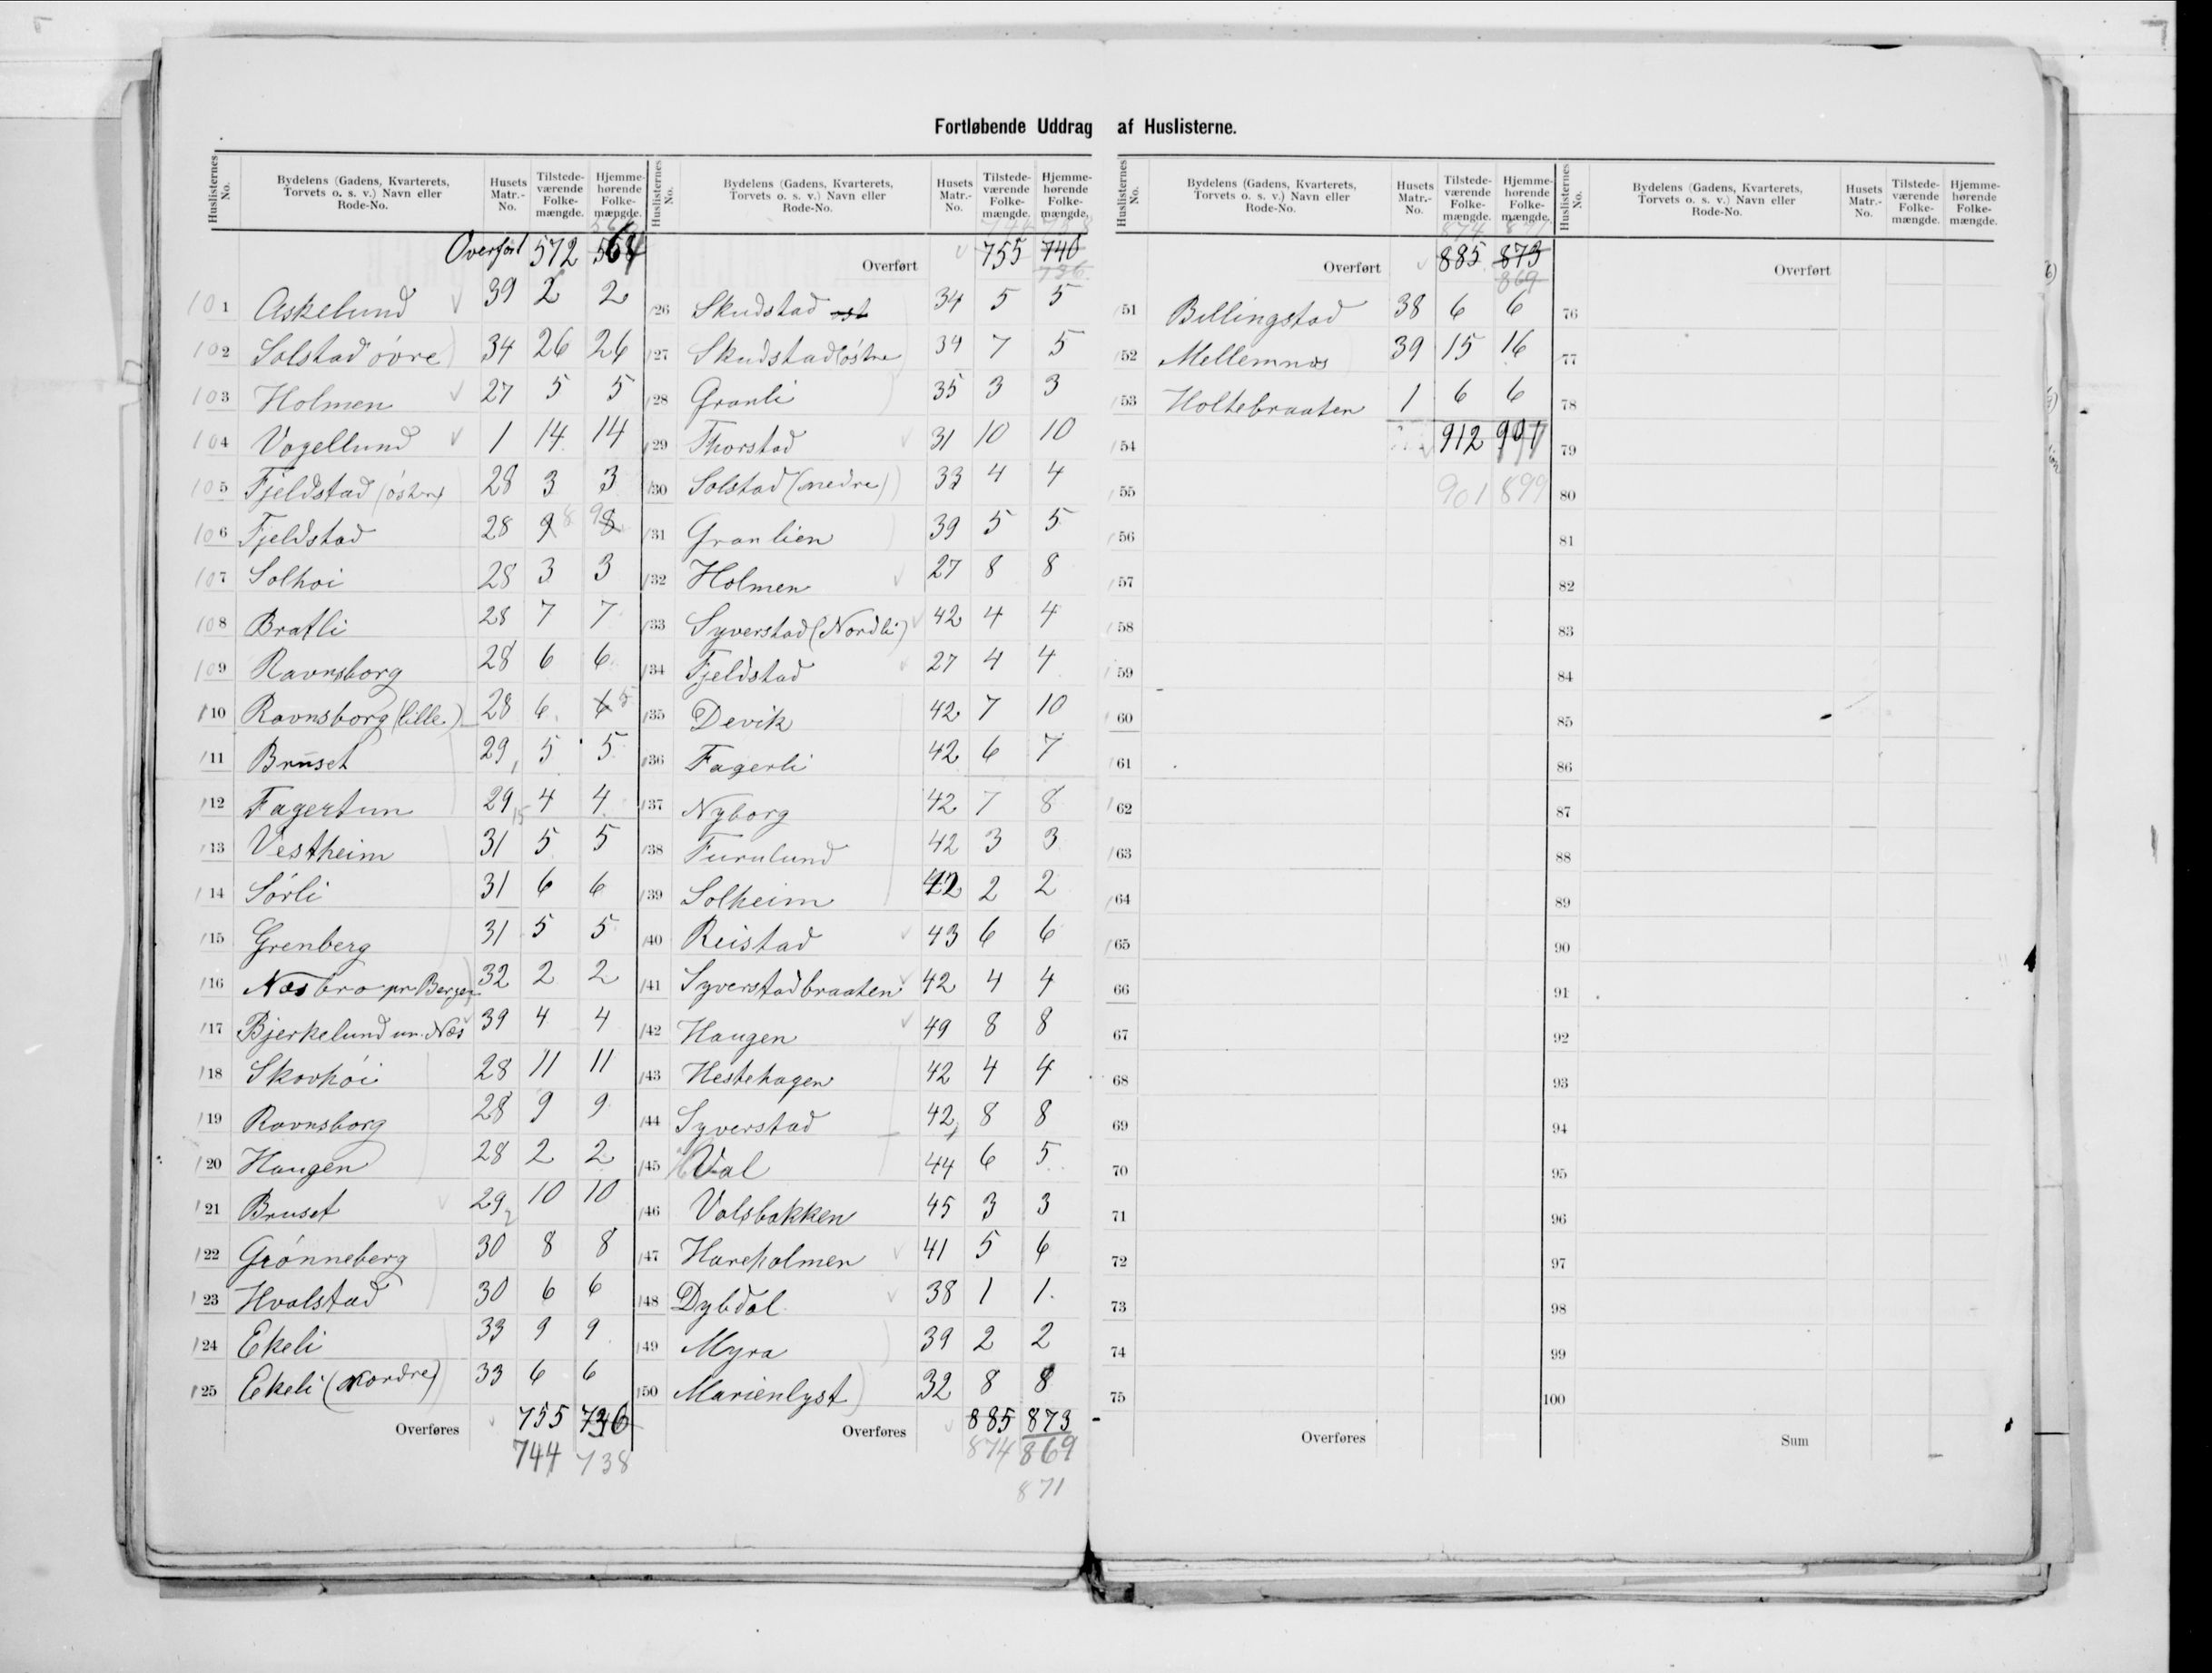 Fortløbende Uddrag af Huslisterne.
Huslisternes No. Bydelens (Gadens, Kvarterets, Torvets o. s. v.) Navn eller Rode-No. Husets Matr.-No. Tilstede-værende Folke-mængde. Hjemme-hørende Folke-mængde.
Overført 572 564
101 Askelund 39 2 2
102 Solstad øvre 34 26 26
103 Holmen 27 5 5
104 Vogellund 1 14 14
105 Fjeldstad (østre) 28 3 3
106 Fjeldstad 28 9 8 9 8
107 Solhøi 28 3 3
108 Bratli 28 7 7
109 Ravnsborg 28 6 6
110 Ravnsborg (lille) 28 6 6 5
111 Bruset 29,1 5 5
112 Fagertun 29,15 4 4
113 Vestheim 31 5 5
114 Sørli 31 6 6
115 Grenberg 31 5 5
116 Næs bro pr Bergen 32 2 2
117 Bjerkelund un. Næs 39 4 4
118 Skovhøi 28 11 11
119 Ravnsborg 28 9 9
120 Haugen 28 2 2
121 Bruset 29,2 10 10
122 Grønneberg 30 8 8
123 Hvalstad 30 6 6
124 Ekeli 33 9 9
125 Ekeli (Nordre) 33 6 6
Overføres 755 736
744 738
Huslisternes No. Bydelens (Gadens, Kvarterets, Torvets o. s. v.) Navn eller Rode-No. Husets Matr.-No. Tilstede-værende Folke-mængde. Hjemme-hørende Folke-mængde.
744 738
Overført 755 740
736
126 Skudstad øst 34 5 5
127 Skudstad (østre 34 7 5
128 Granli 35 3 3
129 Thorstad 31 10 10
130 Solstad (nedre) 33 4 4
131 Granlien 39 5 5
132 Holmen 27 8 8
133 Syverstad (Nordli) 42 4 4
134 Fjeldstad 27 4 4
135 Devik 42 7 10
136 Fagerli 42 6 7
137 Nyborg 42 7 8
138 Furulund 42 3 3
139 Solheim 42 2 2
140 Reistad 43 6 6
141 Syverstadbraaten 42 4 4
142 Haugen 49 8 8
143 Hestehagen 42 4 4
144 Syverstad 42 8 8
145 Val 44 6 5
146 Valsbakken 45 3 3
147 Hareholmen 41 5 6
148 Dybdal 38 1 1
149 Myra 39 2 2
150 Marienlyst 32 8 8
Overføres 885 873
874 869
871
Huslisternes No. Bydelens (Gadens, Kvarterets, Torvets o. s. v.) Navn eller Rode-No. Husets Matr.-No. Tilstede-værende Folke-mængde. Hjemme-hørende Folke-mængde.
874 871
Overført 885 873
869
151 Billingstad 38 6 6
152 Mellemnæs 39 15 16
153 Holtebraaten 1 6 6
154 912 901
155 901 899
156
157
158
159
160
161
162
163
164
165
66
67
68
69
70
71
72
73
74
75
Overføres
Huslisternes No. Bydelens (Gadens, Kvarterets, Torvets o. s. v.) Navn eller Rode-No. Husets Matr.-No. Tilstede-værende Folke-mængde. Hjemme-hørende Folke-mængde.
Overført
76
77
78
79
80
81
82
83
84
85
86
87
88
89
90
91
92
93
94
95
96
97
98
99
100
Sum